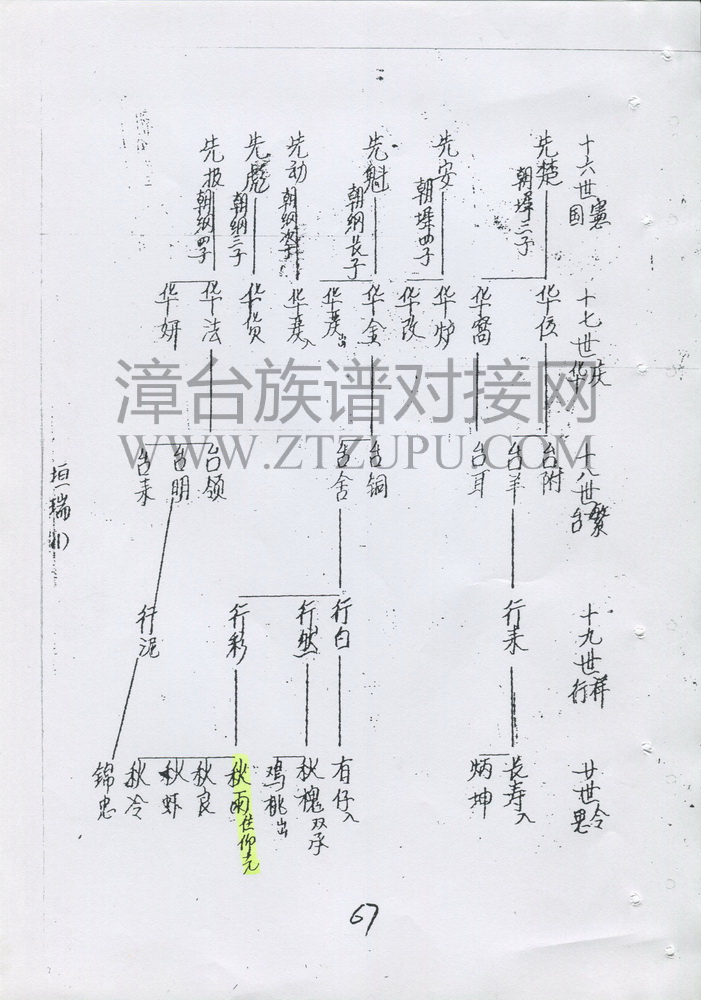 十六世憲国
先楚 朝墀三子
先安 朝墀四子
先魁 朝纲长子
先劝 朝纲次子
先彪 朝纲三子
先报 朝纲四子
十七世庆华
华伩
华窩
华炉
华改
华金
华度出
华度入
华货
华法
华妍
漳台族谱对接网
WWW.ZTZUPU.COM
十八世繁台
台附
台羊
台耳
台铜
台舍
台领
台明
台未
垣瑞(1)
十九世祥行
行未
行白
行然
行彩
行泥
廿世令思
长寿入
炳坤
有仔入
秋槐双承
鸡桃出
秋雨住仰光
秋良
秋虾
秋冷
錦忠
67